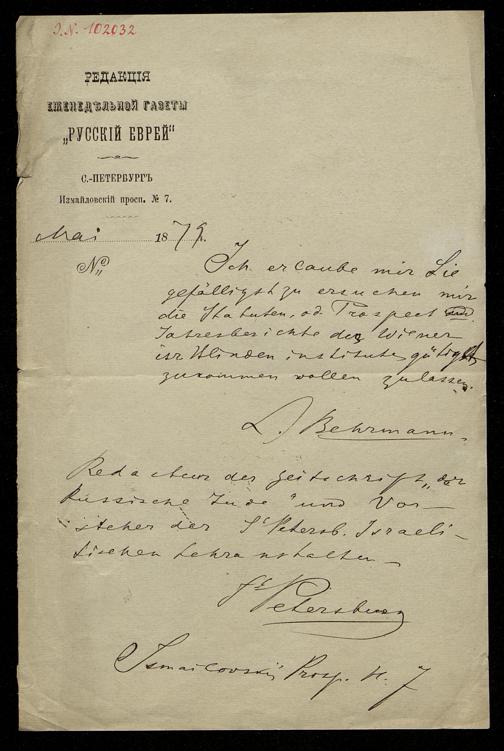 J.N. 102032
РЕДАКЦІЯ
ЕЖЕНЕДѢЛЬНОЙ ГАЗЕТЫ
„РУССКІЙ ЕВРЕЙ“
С.-ПЕТЕРБУРГЪ
Измайловскій просп. № 7.
Mai 1879.
№
Ich erlaube mir Sie
gefälligst zu ersuchen mir
die Statuten, od Prospect und
Jahresberichte der Wiener
isr Blinden institute gütigst
zukommen wollen zulassen.
L. Behrmann.
Redacteur der Zeitschrift „der
Russische Jude“ und Vor-
steher der St Petersb. Israeli-
tischen Lehranstalten
St Petersburg
Ismailovskij Prosp. N. 7